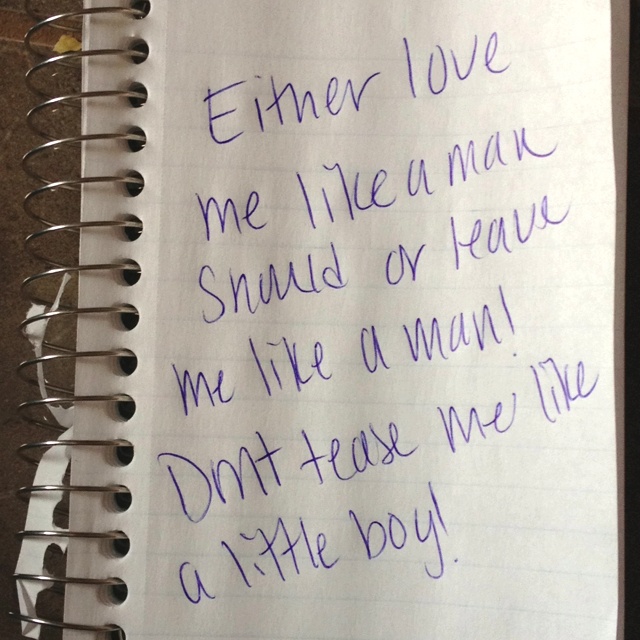 Either love
me like a man
Should or leave
me like a man!
Dont tease me like
a little boy!